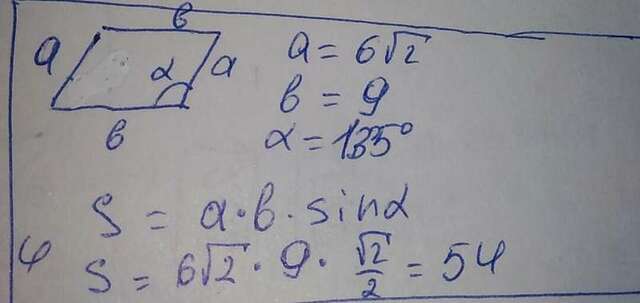 в
a α a
в
a = 6√2
в = 9
α = 135°
S = a·в·sinα
φ S = 6√2 · 9 · √2/2 = 54